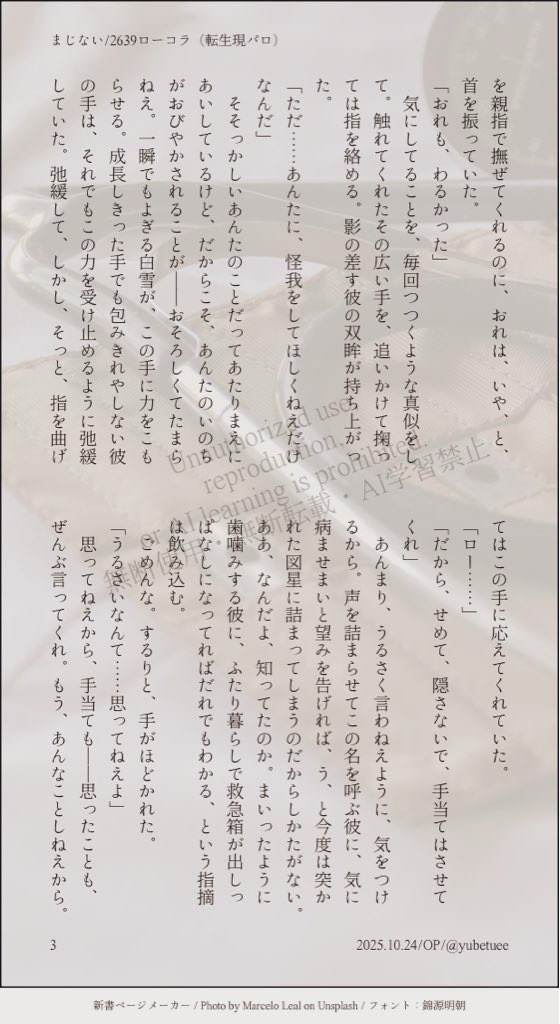 まじない/2639ローコラ（転生現パロ）
を親指で撫ぜてくれるのに、おれは、いや、と、
首を振っていた。
「おれも、わるかった」
　気にしてることを、毎回つつくような真似をし
て。触れてくれたその広い手を、追いかけて掬っ
ては指を絡める。影の差す彼の双眸が持ち上がっ
た。
「ただ……あんたに、怪我をしてほしくねえだけ
なんだ」
　そそっかしいあんたのことだってあたりまえに
あいしているけど、だからこそ、あんたのいのち
がおびやかされることが――おそろしくてたまら
ねえ。一瞬でもよぎる白雪が、この手に力をこも
らせる。成長しきった手でも包みきれやしない彼
の手は、それでもこの力を受け止めるように弛緩
していた。弛緩して、しかし、そっと、指を曲げ
てはこの手に応えてくれていた。
「ロー……」
「だから、せめて、隠さないで、手当てはさせて
くれ」
　あんまり、うるさく言わねえように、気をつけ
るから。声を詰まらせてこの名を呼ぶ彼に、気に
病ませまいと望みを告げれば、う、と今度は突か
れた図星に詰まってしまうのだからしかたがない。
ああ、なんだよ、知ってたのか。まいったように
歯噛みする彼に、ふたり暮らしで救急箱が出しっ
ぱなしになってればだれでもわかる、という指摘
は飲み込む。
　ごめんな。するりと、手がほどかれた。
「うるさいなんて……思ってねえよ」
　思ってねえから、手当ても――思ったことも、
ぜんぶ言ってくれ。もう、あんなことしねえから。
Unauthorized use,
reproduction,
or AI learning is prohibited.
無断使用・無断転載・AI学習禁止
3
2025.10.24/OP/@yubetuee
新書ページメーカー / Photo by Marcelo Leal on Unsplash / フォント：錦源明朝